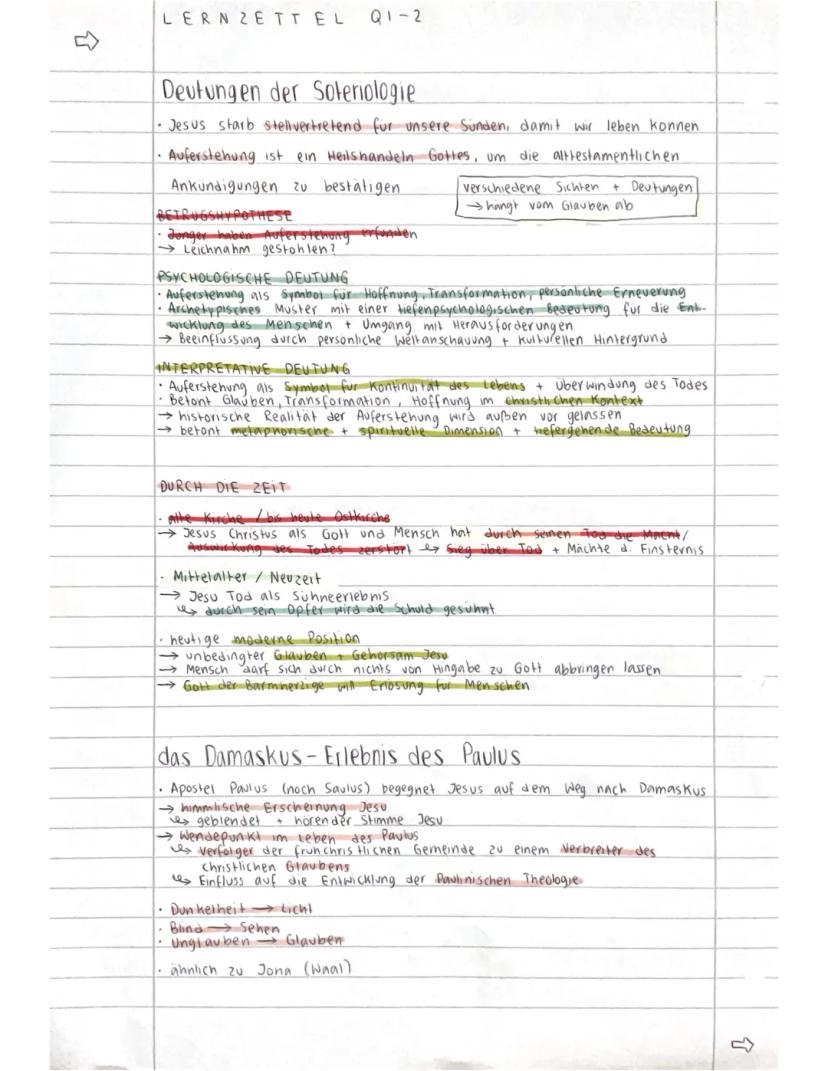 LERNZETTEL Q1-2
⇨
Deutungen der Soteriologie
· Jesus starb stellvertretend für unsere Sünden, damit wir leben können
· Auferstehung ist ein Heilshandeln Gottes, um die alttestamentlichen
Ankündigungen zu bestätigen
verschiedene Sichten + Deutungen
→ hängt vom Glauben ab
BETRUGSHYPOTHESE
· Jünger haben Auferstehung erfunden
→ Leichnahm gestohlen?
PSYCHOLOGISCHE DEUTUNG
· Auferstehung als Symbol für Hoffnung, Transformation, persönliche Erneuerung
· Archetypisches Muster mit einer tiefenpsychologischen Bedeutung für die Ent-
wicklung des Menschen + Umgang mit Herausforderungen
→ Beeinflussung durch persönliche Weltanschauung + kulturellen Hintergrund
INTERPRETATIVE DEUTUNG
· Auferstehung als Symbol für Kontinuität des Lebens + Überwindung des Todes
· Betont Glauben, Transformation, Hoffnung im christlichen Kontext
→ historische Realität der Auferstehung wird außen vor gelassen
→ betont metaphorische + spirituelle Dimension + tiefergehende Bedeutung
DURCH DIE ZEIT
· alte Kirche / bis heute Ostkirche
→ Jesus Christus als Gott und Mensch hat durch seinen Tod die Macht/
Auswirkung des Todes zerstört ↪ Sieg über Tod + Mächte d. Finsternis
· Mittelalter / Neuzeit
→ Jesu Tod als Sühneerlebnis
↪ durch sein Opfer wird die Schuld gesühnt
· heutige moderne Position
→ unbedingter Glauben + Gehorsam Jesu
→ Mensch darf sich durch nichts von Hingabe zu Gott abbringen lassen
→ Gott der Barmherzige will Erlösung für Menschen
das Damaskus-Erlebnis des Paulus
· Apostel Paulus (noch Saulus) begegnet Jesus auf dem Weg nach Damaskus
→ himmlische Erscheinung Jesu
↪ geblendet + hörender Stimme Jesu
→ Wendepunkt im Leben des Paulus
↪ Verfolger der frühchristlichen Gemeinde zu einem Verbreiter des
christlichen Glaubens
↪ Einfluss auf die Entwicklung der Paulinischen Theologie
· Dunkelheit → Licht
· Blind → Sehen
· Unglauben → Glauben
· ähnlich zu Jona (Waal)
⇨